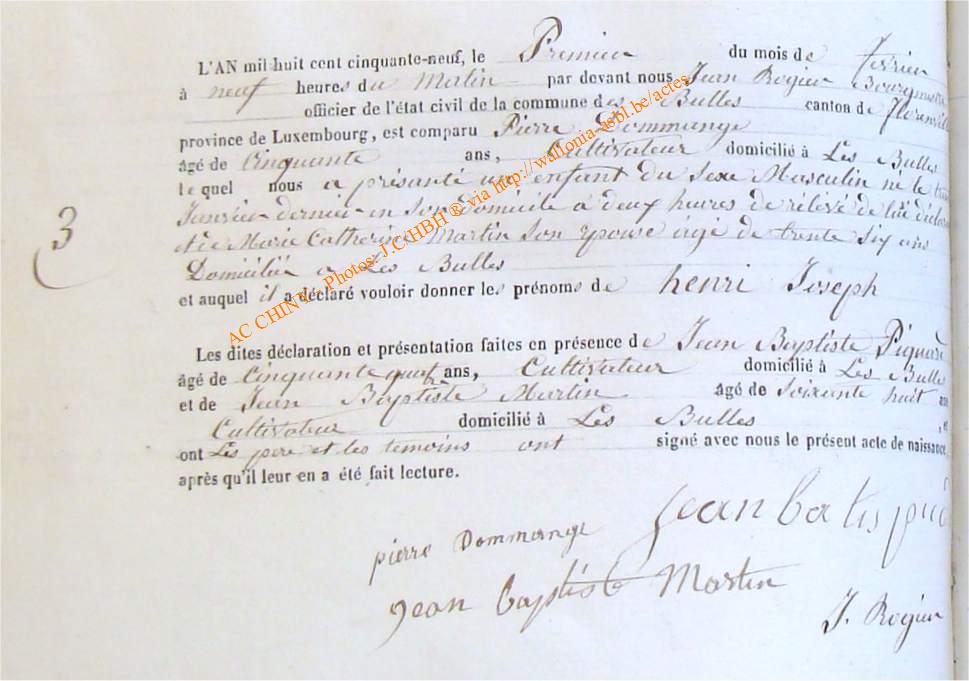 L'AN mil huit cent cinquante-neuf, le Premier du mois de fevrier
à neuf heures du Matin par devant nous Jean Rogier Bourgmestre
officier de l'état civil de la commune des Bulles canton de florenville
province de Luxembourg, est comparu Pierre Dommange
âgé de Cinquante ans, Cultivateur domicilié à Les Bulles
lequel nous a présanté un enfant du Sexe Masculin né le
Janvier dernier en son domicile a deux heures de rélevé de lui déclarant
et de Marie Catherine Martin Son épouse agé de trente Six ans
Domiciliée a Les Bulles
3
et auquel il a déclaré vouloir donner les prénoms de henri Joseph
Les dites déclaration et présentation faites en présence de Jean Baptiste Pignard
âgé de Cinquante ans, Cultivateur domicilié à Les Bulles
et de Jean Baptiste Martin âgé de Soixante huit ans
Cultivateur domicilié à Les Bulles , et
ont Les pere et les temoins ont signé avec nous le présent acte de naissance,
après qu'il leur en a été fait lecture.
pierre Dommange jean batis
jean baptiste Martin
J. Rogier
AC CHINY - Photos: J.C. HBH ® via http://wallonia-asbl.be/actes